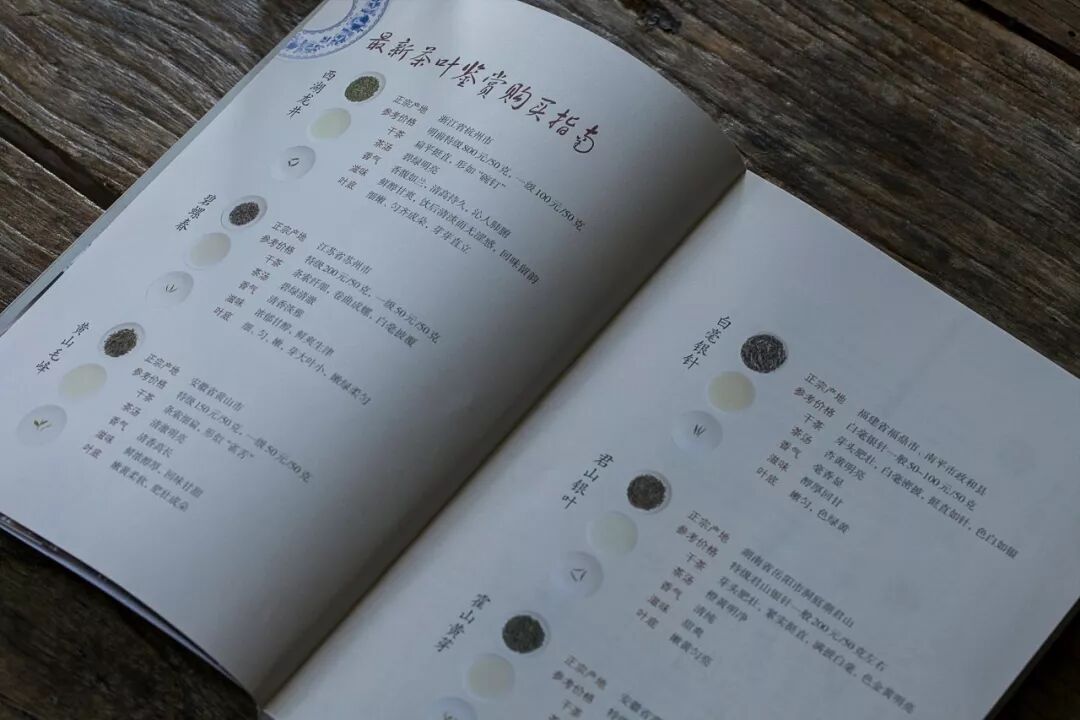 最新茶叶鉴赏购买指南
西湖龙井
正宗产地 浙江省杭州市
参考价格 明前特级800元/50克,一级100元/50克
干茶 扁平挺直,形如“碗钉”
茶汤 碧绿明亮
香气 香馥如兰、清高持久、沁人肺腑
滋味 鲜醇甘爽,饮后清淡而无涩感,回味留韵
叶底 细嫩、匀齐成朵,芽芽直立
碧螺春
正宗产地 江苏省苏州市
参考价格 特级200元/50克,一级50元/50克
干茶 条索纤细,卷曲成螺,白毫披覆
茶汤 碧绿清澈
香气 清香浓郁
滋味 浓郁甘醇,鲜爽生津
叶底 细、匀、嫩,芽大叶小,嫩绿柔匀
黄山毛峰
正宗产地 安徽省黄山市
参考价格 特级150元/50克,一级50元/50克
干茶 条索细扁,形似“雀舌”
茶汤 清澈明亮
香气 清香高长
滋味 鲜浓醇厚,回味甘甜
叶底 嫩黄柔软,肥壮成朵
白毫银针
正宗产地 福建省福鼎市、南平市政和县
参考价格 白毫银针一般50~100元/50克
干茶 芽头肥壮,白毫密披,挺直如针,色白如银
茶汤 杏黄明亮
香气 毫香显
滋味 醇厚回甘
叶底 嫩匀,色绿黄
君山银叶
正宗产地 湖南省岳阳市洞庭湖君山
参考价格 特级君山银针一般200元/50克左右
干茶 芽头肥壮,紧实挺直,满披白毫,色金黄明亮
茶汤 橙黄明净
香气 清纯
滋味 甜爽
叶底 嫩黄匀亮
霍山黄芽
正宗产地 安徽省
参考价格